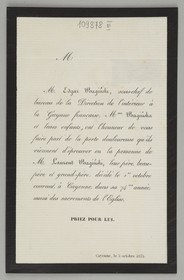 109878 II
M
M. Edgar Maginhi, sous-chef de
bureau de la Direction de l'intérieur à
la Guyane française, Mme Maginhi
et leurs enfants, ont l'honneur de vous
faire part de la perte douloureuse qu'ils
viennent d'éprouver en la personne de
M. Laurent Maginhi, leur père, beau-
père et grand-père, décédé le 1er octobre
courant, à Cayenne dans sa 74me année,
muni des sacrements de l'Église.
PRIEZ POUR LUI.
Cayenne, le 3 octobre